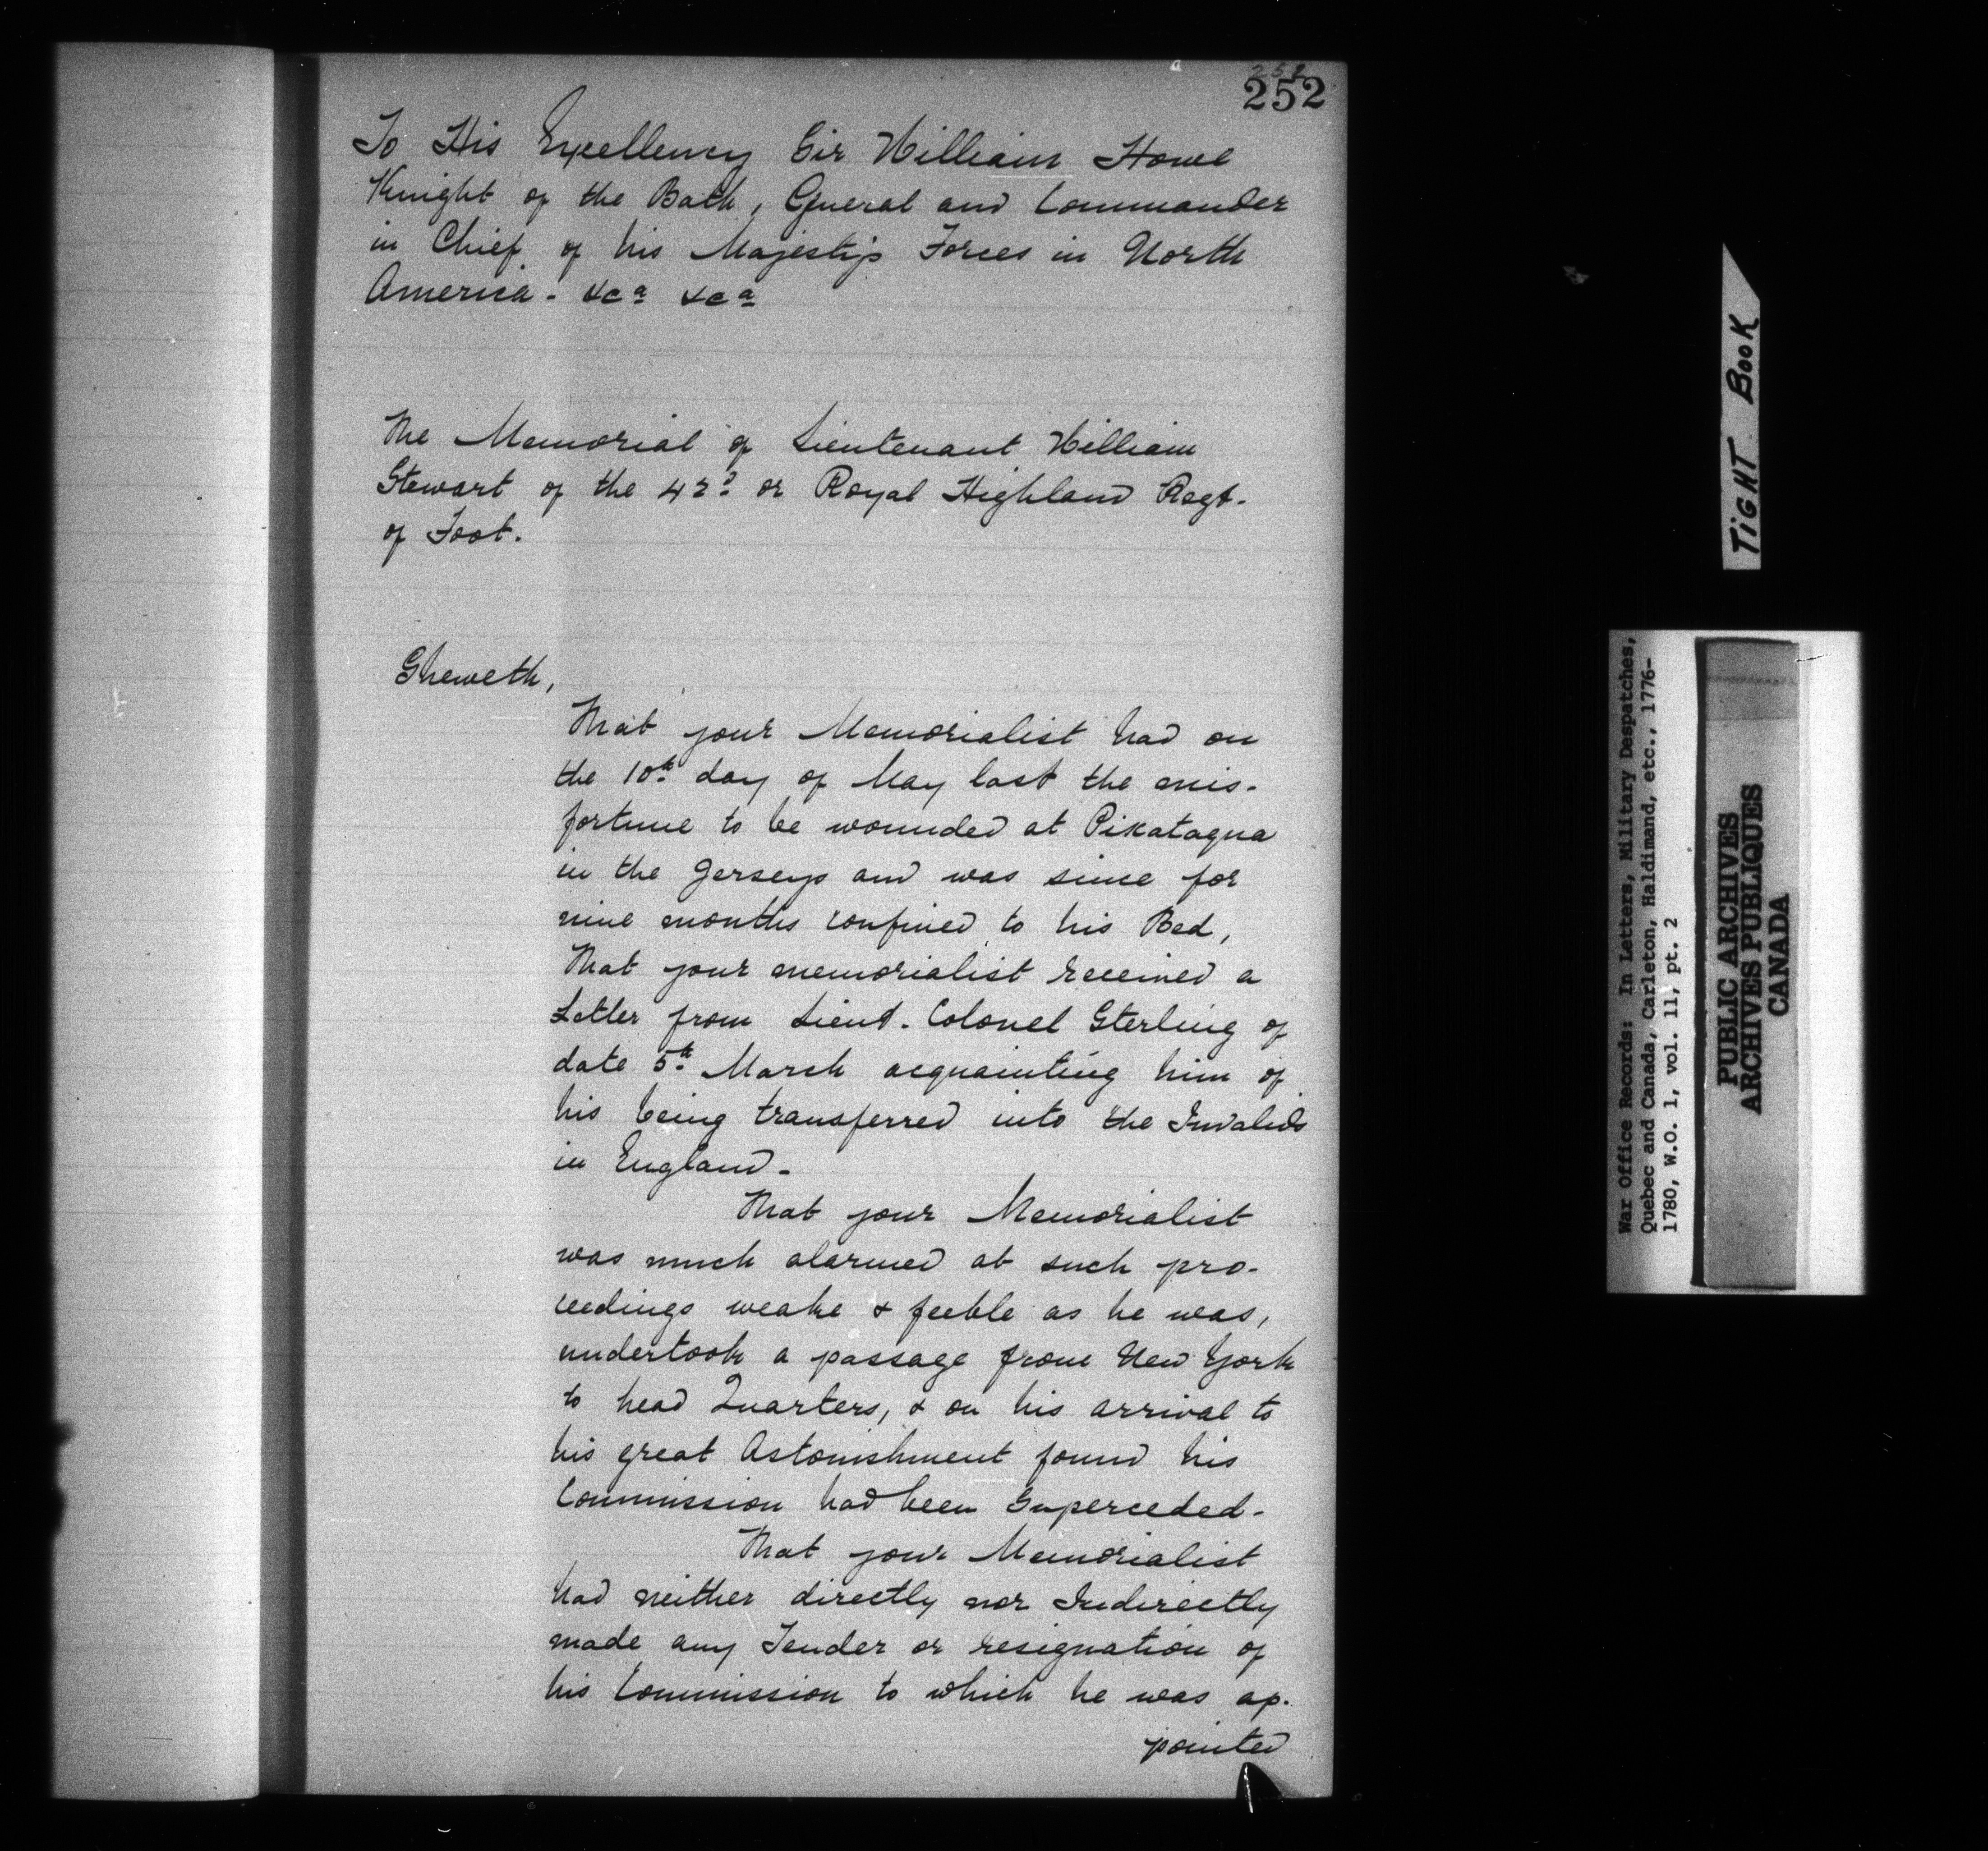 252
252
To His Excellency Sir William Howe
Knight of the Bath, General and Commander
in Chief of his Majesty's Forces in North
America - &ca &ca
The Memorial of Lieutenant William
Stewart of the 42d or Royal Highland Regt.
of Foot.
Sheweth,
That your Memorialist had on
the 10th day of May last the mis-
fortune to be wounded at Pikataqua
in the Jerseys and was since for
nine months confined to his Bed,
That your memorialist received a
Letter from Lieut. Colonel Sterling of
date 5th March acquainting him of
his being transferred into the Invalids
in England -
That your Memorialist
was much alarmed at such pro-
ceedings weake & feeble as he was,
undertook a passage from New York
to head Quarters, & on his arrival to
his great Astonishment found his
Commission had been Superceded -
That your Memorialist
had neither directly nor Indirectly
made any Tender or resignation of
his Commission to which he was ap-
pointed
TIGHT BOOK
War Office Records: In Letters, Military Despatches,
Quebec and Canada, Carleton, Haldimand, etc., 1776-
1780, W.O. 1, vol. 11, pt. 2
PUBLIC ARCHIVES
ARCHIVES PUBLIQUES
CANADA